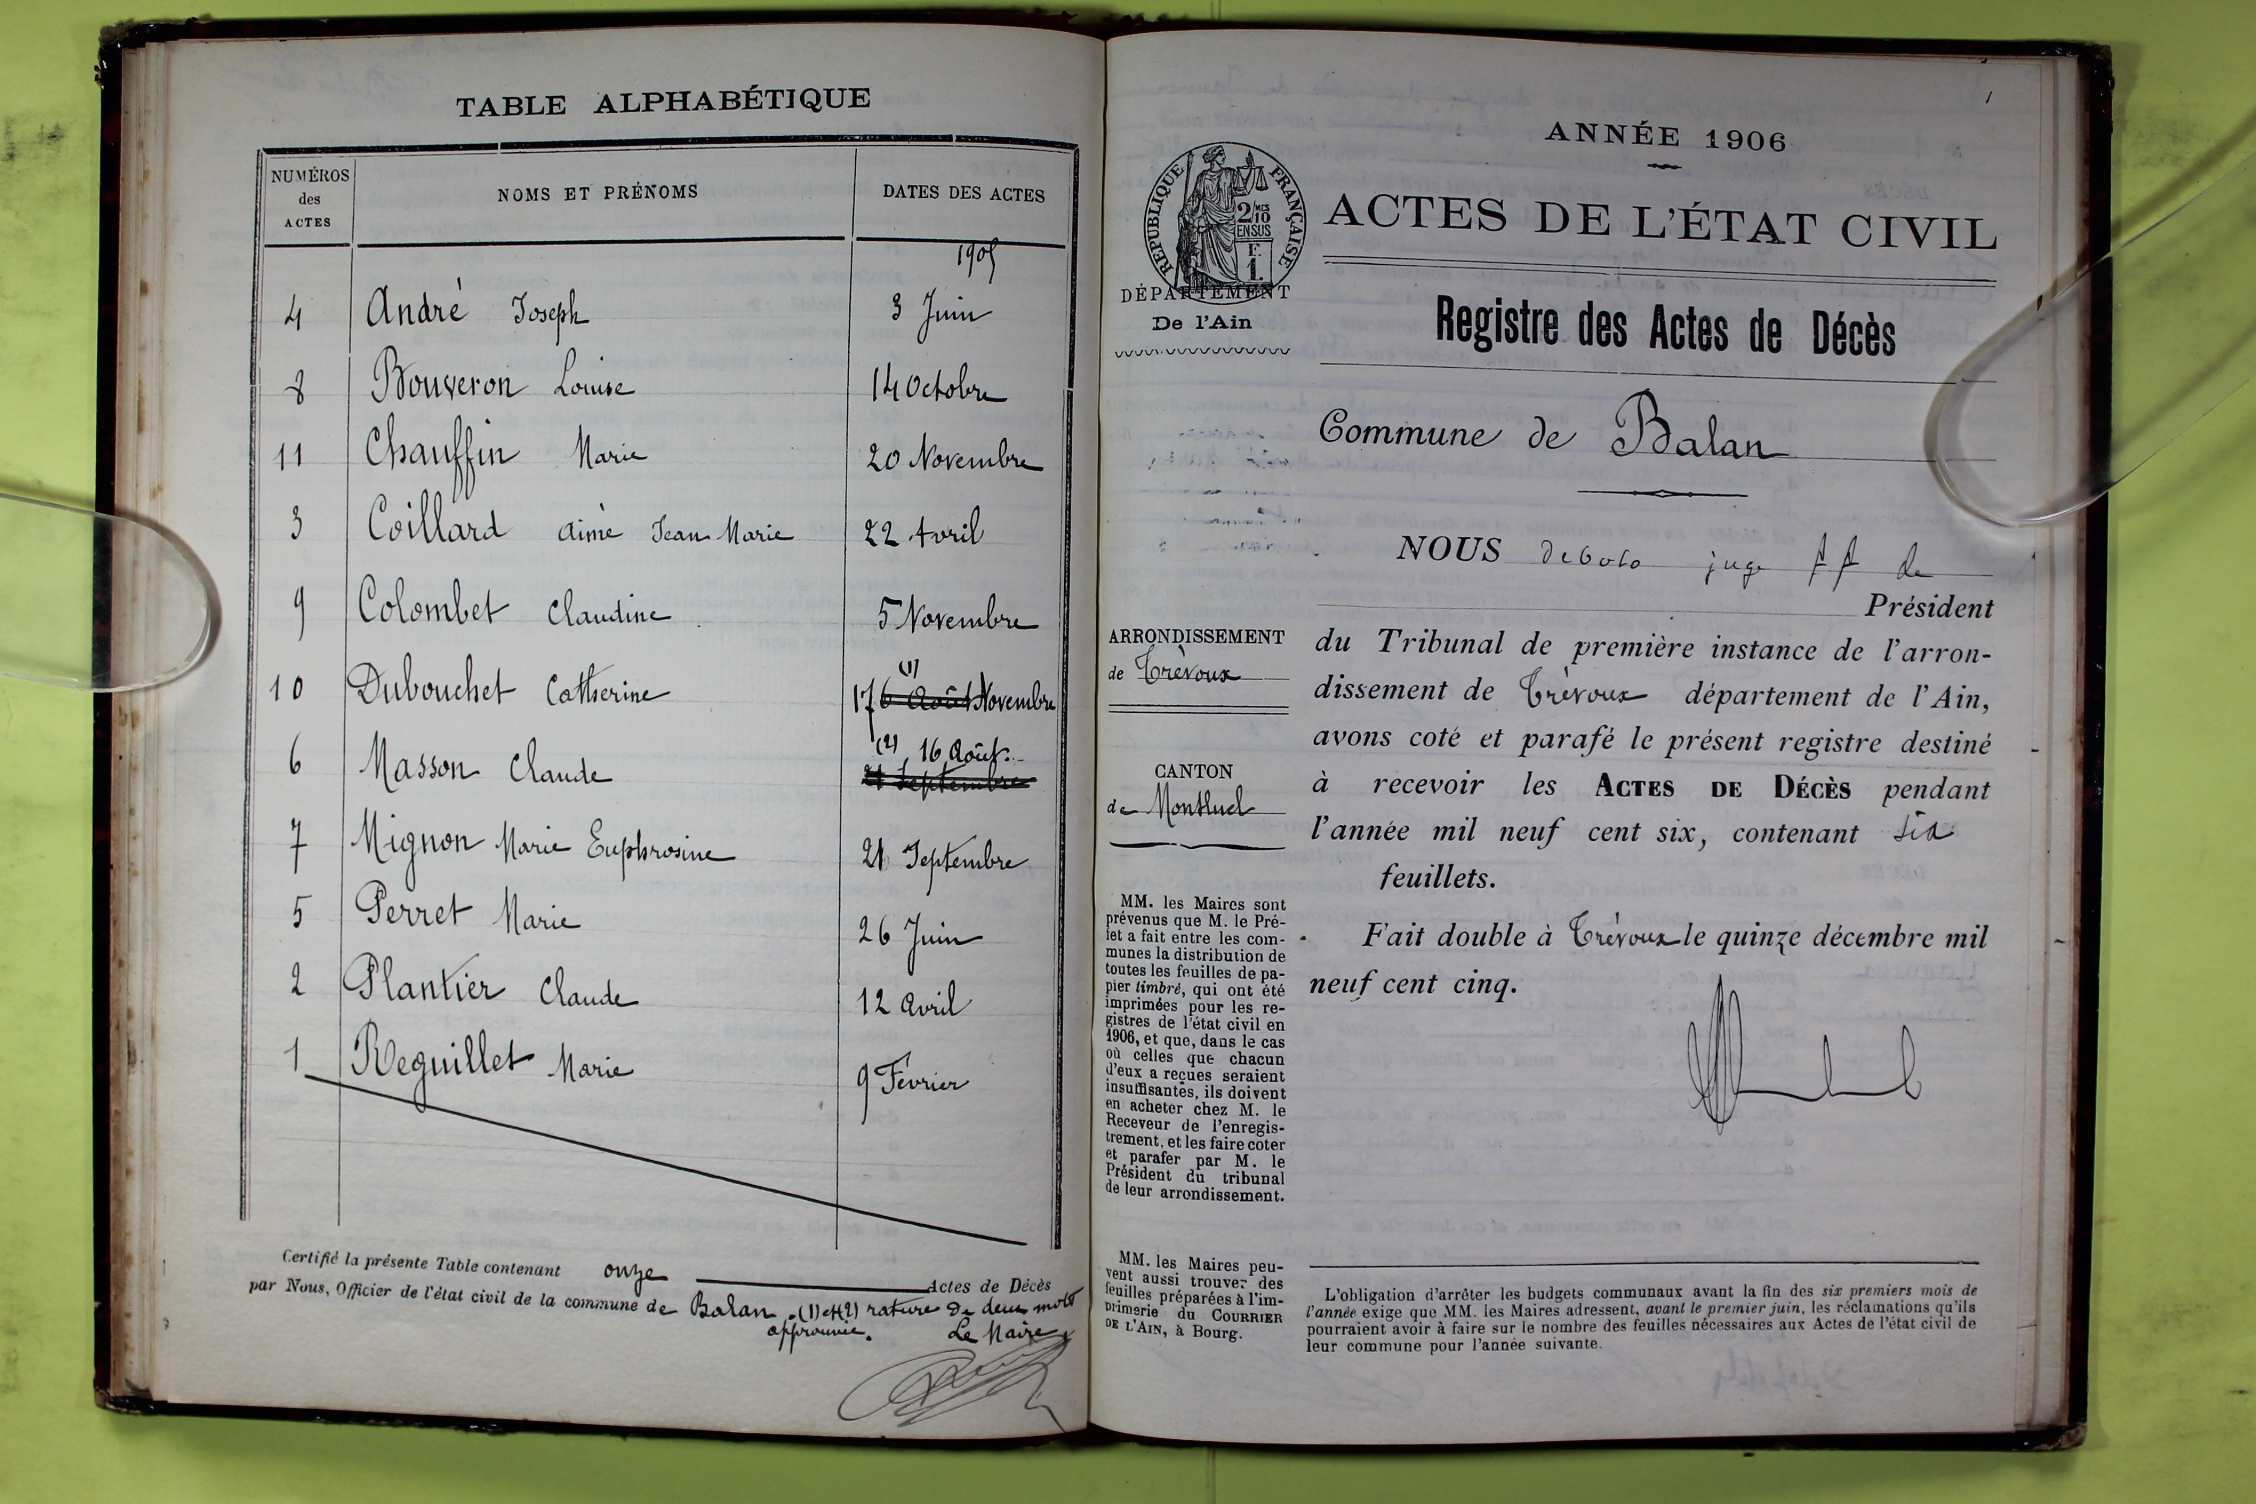 TABLE ALPHABÉTIQUE
NUMÉROS des ACTES NOMS ET PRÉNOMS DATES DES ACTES
1905
4 André Joseph 3 Juin
8 Bouveron Louise 14 Octobre
11 Chauffin Marie 20 Novembre
3 Coillard Aimé Jean Marie 22 Avril
9 Colombet Claudine 5 Novembre
(1)
10 Dubouchet Catherine 17 6 Août Novembre
(2) 16 Août
6 Masson Claude 21 Septembre
7 Mignon Marie Euphrosine 21 Septembre
5 Perret Marie 26 Juin
2 Plantier Claude 12 Avril
1 Reguillet Marie 9 Février
Certifié la présente Table contenant onze Actes de Décès
par Nous, Officier de l'état civil de la commune de Balan. (1) et (2) rature de deux mots
approuvée. Le Maire,
1
ANNÉE 1906
RÉPUBLIQUE FRANÇAISE
2/10 MES
EN SUS
F.
1.
ACTES DE L'ÉTAT CIVIL
DÉPARTEMENT
De l'Ain
Registre des Actes de Décès
Commune de Balan
NOUS juge ff de
Président
du Tribunal de première instance de l'arron-
dissement de Trévoux département de l'Ain,
avons coté et parafé le présent registre destiné
à recevoir les ACTES DE DÉCÈS pendant
l'année mil neuf cent six, contenant six
feuillets.
Fait double à Trévoux le quinze décembre mil
neuf cent cinq.
ARRONDISSEMENT
de Trévoux
CANTON
de Montluel
MM. les Maires sont
prévenus que M. le Pré-
fet a fait entre les com-
munes la distribution de
toutes les feuilles de pa-
pier timbré, qui ont été
imprimées pour les re-
gistres de l'état civil en
1906, et que, dans le cas
où celles que chacun
d'eux a reçues seraient
insuffisantes, ils doivent
en acheter chez M. le
Receveur de l'enregis-
trement, et les faire coter
et parafer par M. le
Président du tribunal
de leur arrondissement.
MM. les Maires peu-
vent aussi trouver des
feuilles préparées à l'im-
primerie du COURRIER
DE L'AIN, à Bourg.
L'obligation d'arrêter les budgets communaux avant la fin des six premiers mois de
l'année exige que MM. les Maires adressent, avant le premier juin, les réclamations qu'ils
pourraient avoir à faire sur le nombre des feuilles nécessaires aux Actes de l'état civil de
leur commune pour l'année suivante.